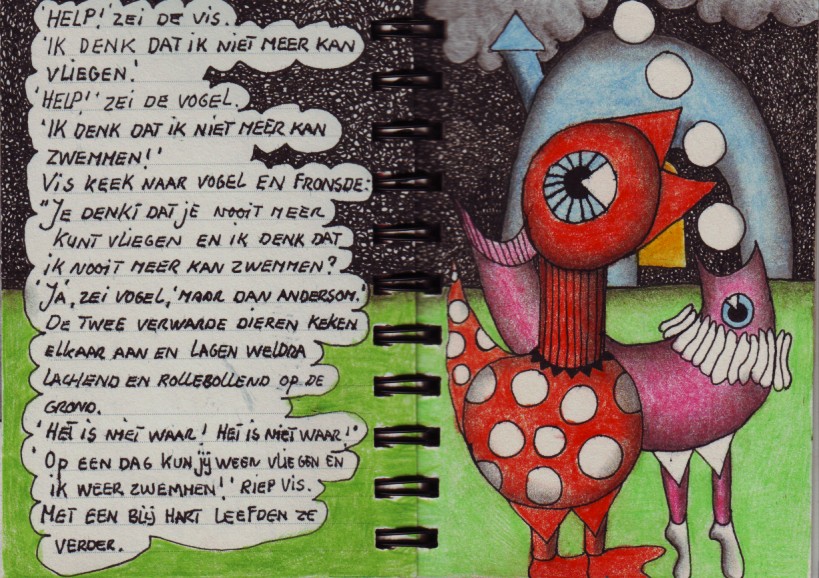 'HELP!' ZEI DE VIS.
'IK DENK DAT IK NIET MEER KAN
VLIEGEN.'
'HELP!' ZEI DE VOGEL.
'IK DENK DAT IK NIET MEER KAN
ZWEMMEN!'
VIS KEEK NAAR VOGEL EN FRONSDE:
"JE DENKT DAT JE NOOIT MEER
KUNT VLIEGEN EN IK DENK DAT
IK NOOIT MEER KAN ZWEMMEN?
'JA', ZEI VOGEL, 'MAAR DAN ANDERSOM.'
DE TWEE VERWARDE DIEREN KEKEN
ELKAAR AAN EN LAGEN WELDRA
LACHEND EN ROLLEBOLLEND OP DE
GROND.
'HET IS NIET WAAR! HET IS NIET WAAR!'
'OP EEN DAG KUN JIJ WEER VLIEGEN EN
IK WEER ZWEMMEN!' RIEP VIS.
MET EEN BLIJ HART LEEFDEN ZE
VERDER.